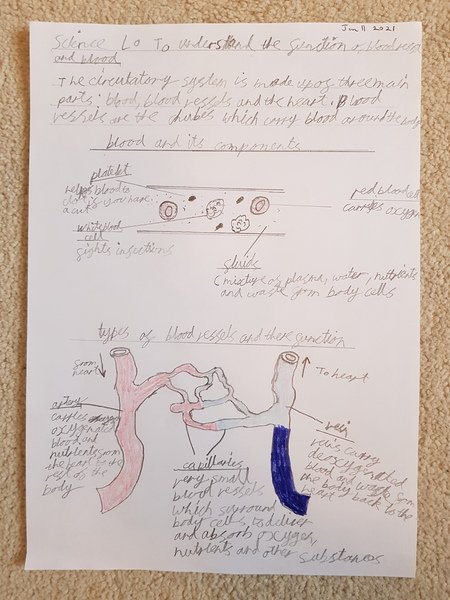 Jan 11 2021
Science Lo To understand the function of blood vessel
and blood
The circulatory system is made up of three main
parts; blood, blood vessels and the heart. Blood
vessels are the chubes which carry blood around the body
blood and its components
platelet
helps blood to
clot is you have
a cut
white blood
cell
fights infections
red blood cell
carries oxygen
fluids
(mixture of plasma, water, nutrients
and waste from body cells
types of blood vessels and there function
from
heart
To heart
artery
carries
oxygenated
blood and
nutrients from
the heart to the
rest of the
body
capillaries
very small
blood vessels
which surround
body cells, to deliver
and absorb oxygen,
nutrients and other substances
vein
veins carry
deoxygenated
blood and waste from
the body back to the
heart